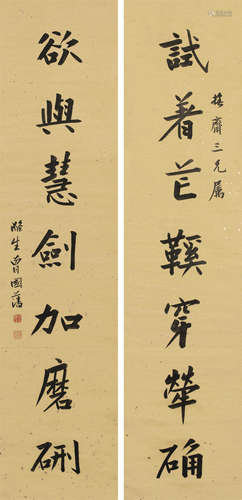 齊三兄属
試着芒鞵穿犖确
欲與慧劍加磨硎
滌生曾國藩